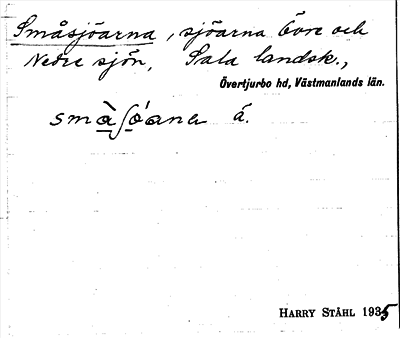 Småsjöarna, sjöarna Övre och
Nedre sjön, Sala landsk.,
Övertjurbo hd, Västmanlands län.
små̀ʃö́ana á.
HARRY STÅHL 1935